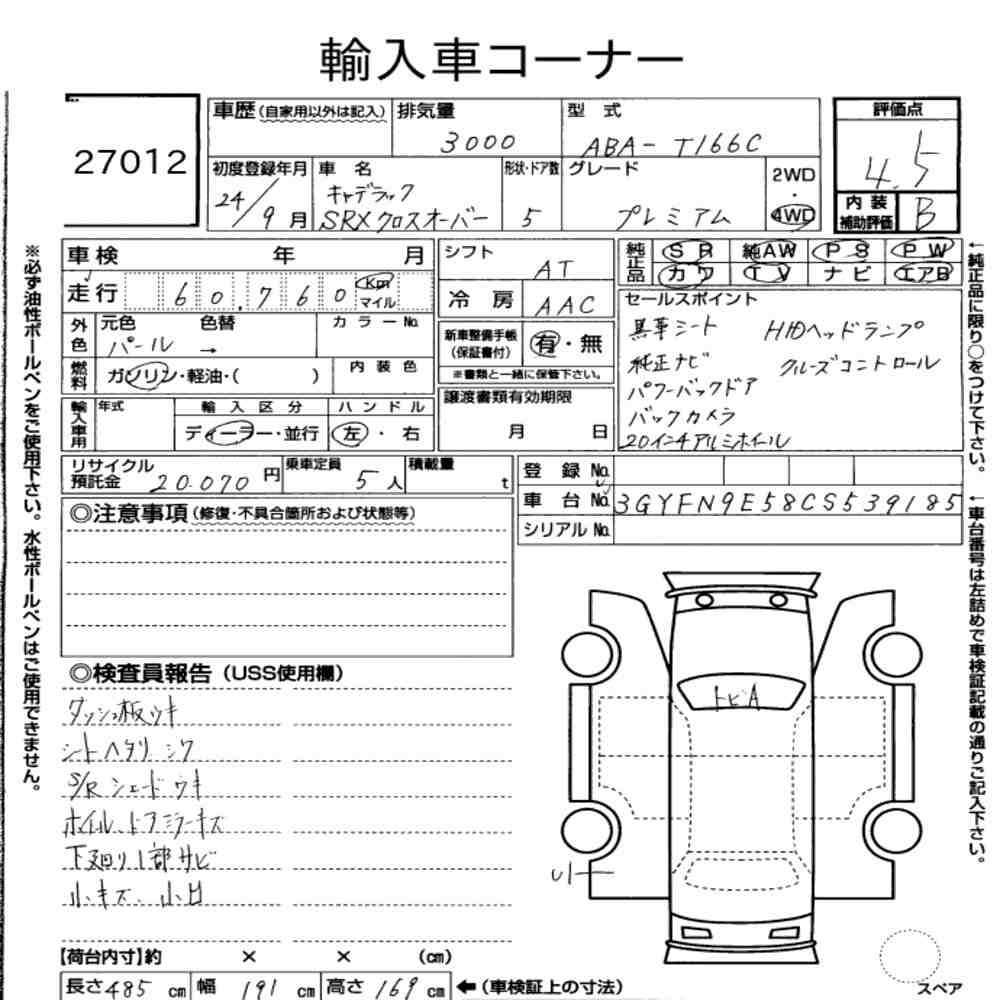 輸入車コーナー
27012
車歴(自家用以外は記入) 排気量 3000 型式 ABA-T166C
評価点 4.5
内装補助評価 B
初度登録年月 24/9月
車名 キャデラック SRXクロスオーバー
形状・ドア数 5
グレード プレミアム
2WD・4WD
車検 年 月
走行 60,760 Km マイル
シフト AT
冷房 AAC
純正品 SR 純AW PS PW
カワ TV ナビ エアB
外色 元色 パール 色替 → カラーNo.
燃料 ガソリン・軽油・( ) 内装色
新車整備手帳(保証書付) 有・無
※書類と一緒に保管下さい。
セールスポイント
黒革シート HIDヘッドランプ
純正ナビ クルーズコントロール
パワーバックドア
バックカメラ
20インチアルミホイール
輸入車用 年式 輸入区分 ディーラー・並行 ハンドル 左・右
譲渡書類有効期限 月 日
リサイクル預託金 20.070円 乗車定員 5人 積載量 t
登録No.
車台No. 3GYFN9E58CS539185
シリアルNo.
◎注意事項(修復・不具合箇所および状態等)
◎検査員報告(USS使用欄)
ダッシュ板ウキ
シートヘタリ シワ
S/Rシェードウキ
ホイル、ドアミラーキズ
下廻り1部サビ
小キズ、小凹
トビA
U1
【荷台内寸】約 × × (cm)
長さ485cm 幅191cm 高さ169cm ←(車検証上の寸法)
スペア
※必ず油性ボールペンをご使用下さい。水性ボールペンはご使用できません。
←純正品に限り○をつけて下さい。
←車台番号は左詰めで車検証記載の通りご記入下さい。